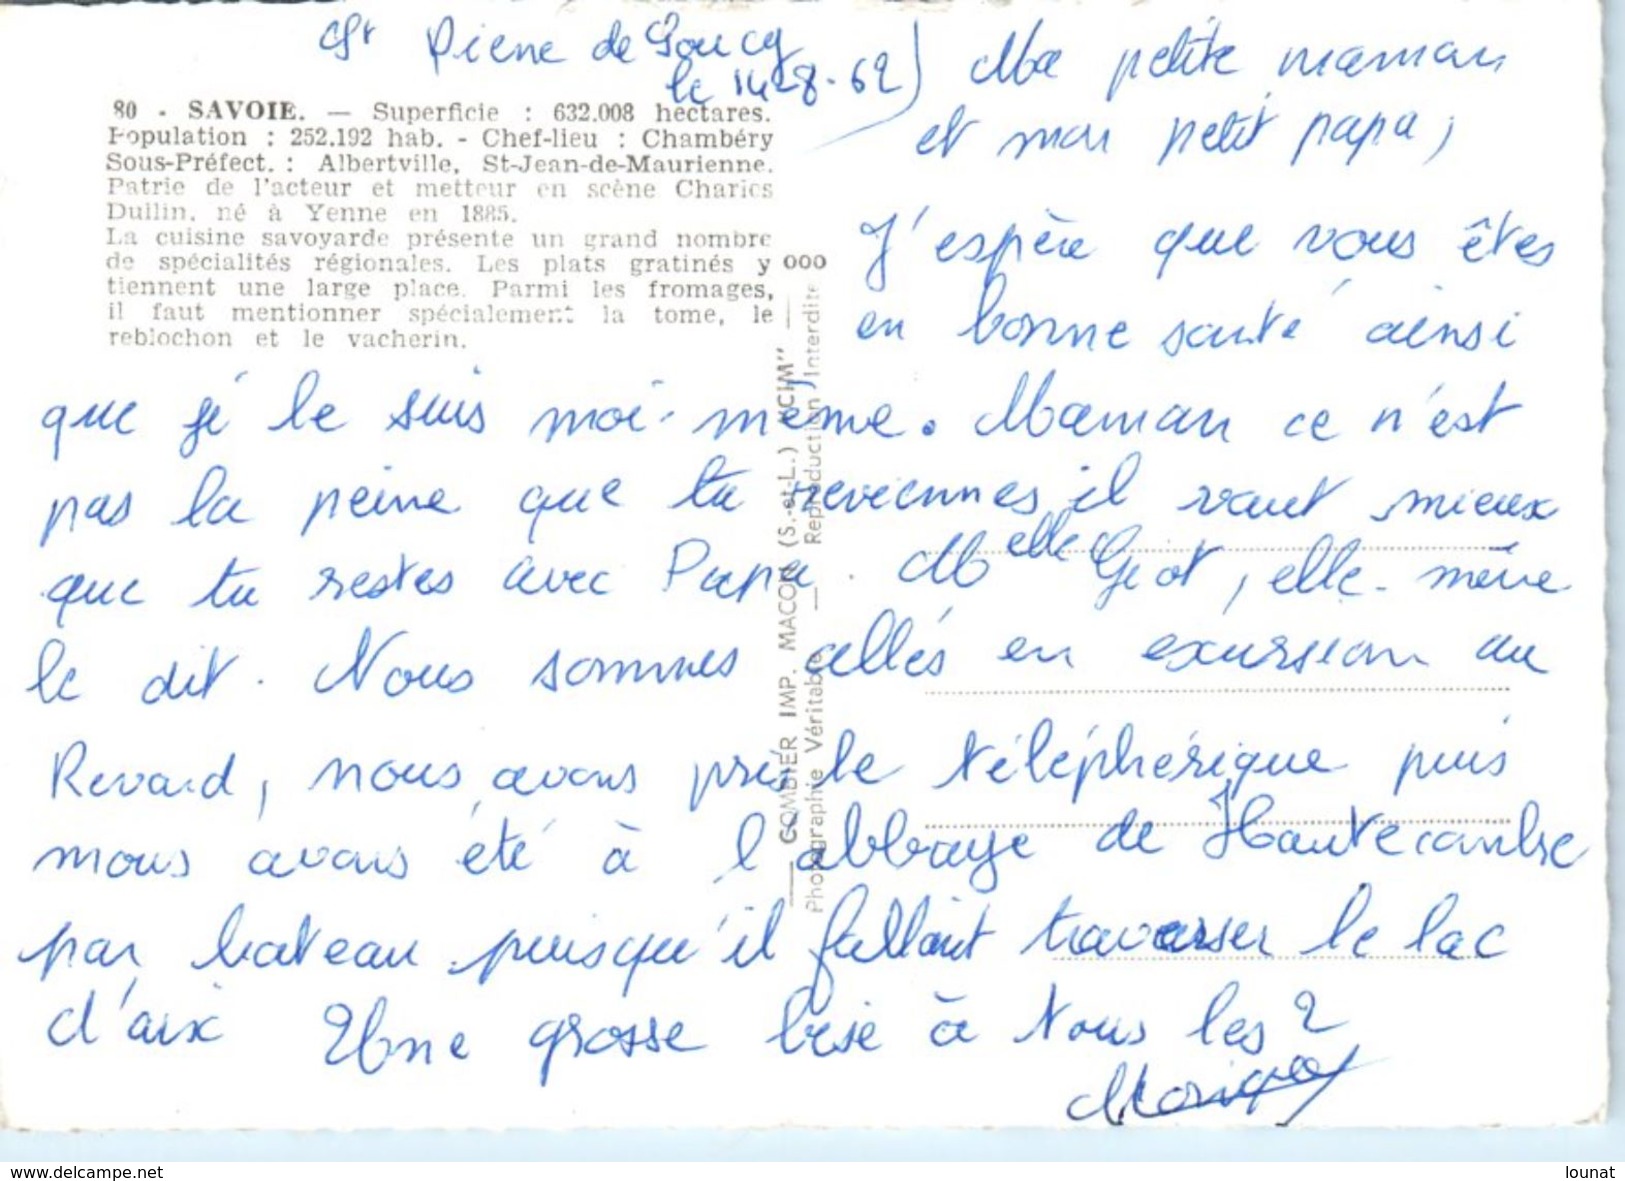 St Pierre de Soucy
le 14-8-62
80 - SAVOIE. — Superficie : 632.008 hectares.
Population : 252.192 hab. - Chef-lieu : Chambéry
Sous-Préfect. : Albertville, St-Jean-de-Maurienne.
Patrie de l'acteur et metteur en scène Charles
Dullin, né à Yenne en 1885.
La cuisine savoyarde présente un grand nombre
de spécialités régionales. Les plats gratinés y
tiennent une large place. Parmi les fromages,
il faut mentionner spécialement la tome, le
reblochon et le vacherin.
ooo
COMBIER IMP. MACON (S.-et-L.) "CIM"
Photographie Véritable — Reproduction Interdite
Ma petite maman
et mon petit papa,
J'espère que vous êtes
en bonne santé ainsi
que je le suis moi-même. Maman ce n'est
pas la peine que tu reviennes il vaut mieux
que tu restes avec Papa. Melle Giot, elle-même
le dit. Nous sommes allés en excursion au
Revard, nous avons pris le téléphérique puis
nous avons été à l'abbaye de Hautecombe
par bateau puisqu'il fallait traverser le lac
d'aix Une grosse bise à tous les 2
delcampe.net
lounat